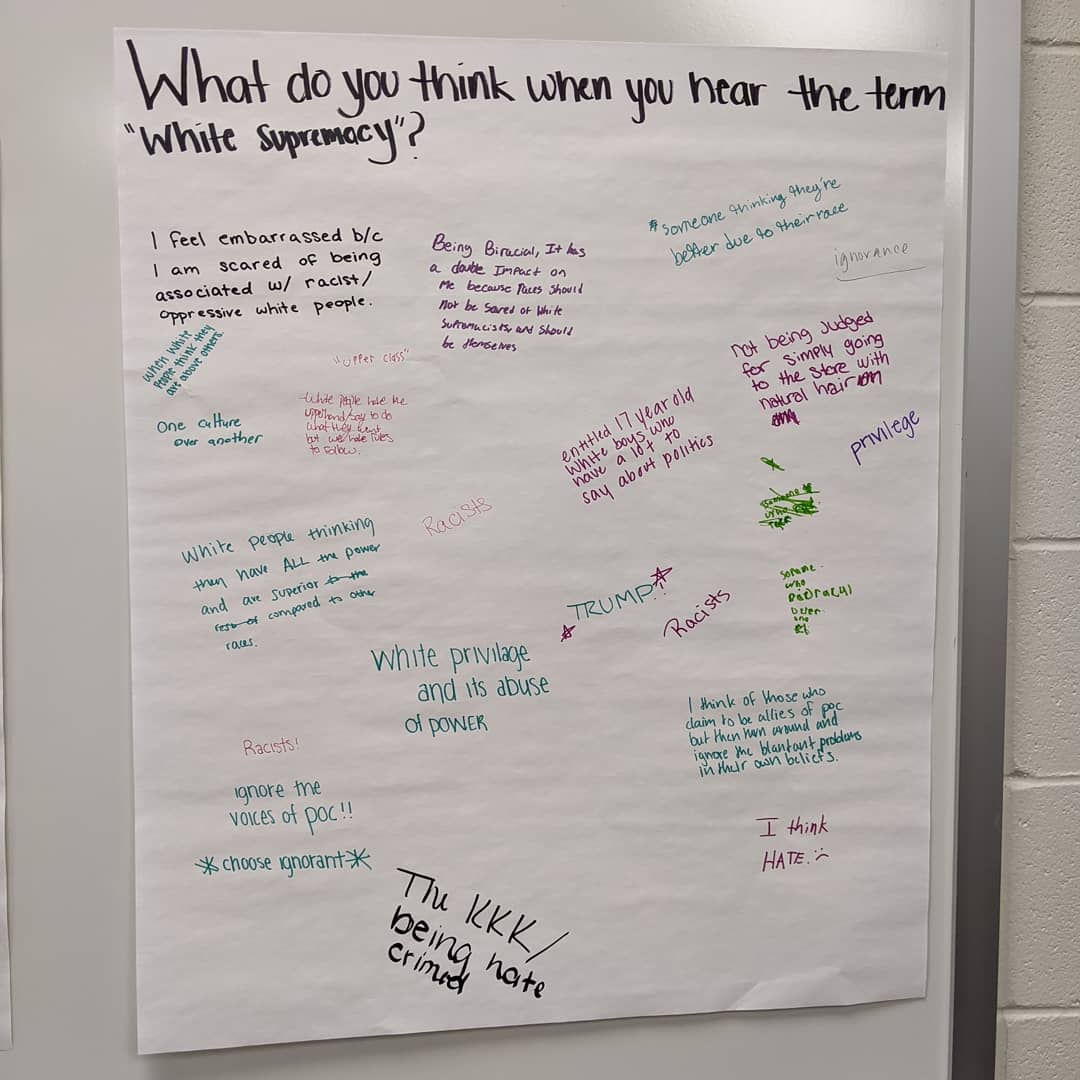 What do you think when you hear the term
"White Supremacy"?
I feel embarrassed b/c
I am scared of being
associated w/ racist/
oppressive white people.
Being Biracial, It has
a double Impact on
Me because Races Should
Not be Scared of White
Supremacists, and Should
be themselves
*someone thinking they're
better due to their race
ignorance
When White
People think they
are above others.
"upper class"
One culture
over another
-White People have the
upperhand/say to do
what they want
but we have rules
to follow.
entitled 17 year old
White boys who
have a lot to
say about politics
not being Judged
for simply going
to the store with
natural hair
privilege
Racists
White people thinking
then have ALL the power
and are superior to the
rest of compared to other
races.
TRUMP!?
Racists
who
White privilage
and its abuse
of POWER
I think of those who
claim to be allies of poc
but then turn around and
ignore the blantant problems
in their own beliefs.
Racists!
ignore the
voices of poc!!
*choose ignorant*
I think
HATE. :(
The KKK/
being hate
crimed